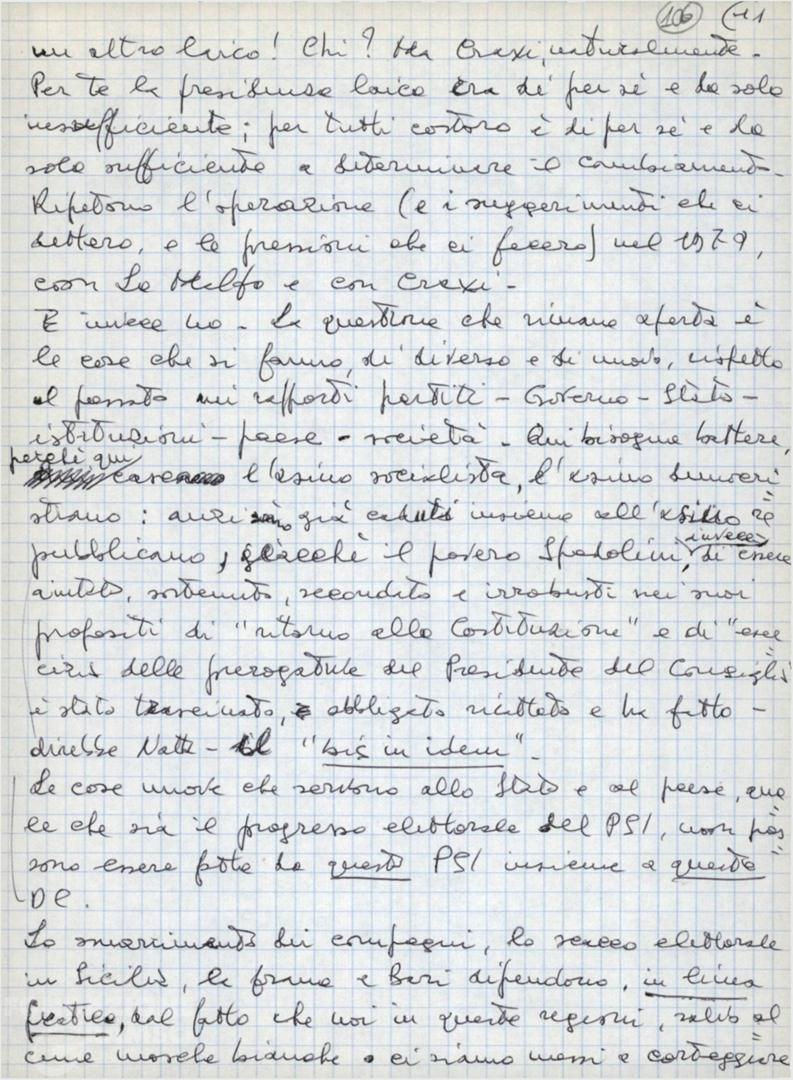 106 (11
un altro laico! Chi? Ma Craxi, naturalmente.
Per te la presidenza laica era di per sé e da sola
insufficiente; per tutti costoro è di per sé e da
sola sufficiente a determinare il cambiamento.
Ripetono l'operazione (e i suggerimenti che ci
dettero, e le pressioni che ci fecero) nel 1979,
con La Malfa e con Craxi.
E invece no. La questione che rimane aperta è
le cose che si fanno, di diverso e di nuovo, rispetto
al passato nei rapporti partiti - Governo - Stato -
istituzioni - paese - società. Qui bisogna battere,
perché qui
l'asino socialista, l'asino demicri
stiano: anzi sono già caduti insieme all'asino re
pubblicano, giacché il povero Spadolini, invece di essere
aiutato, sostenuto, secondato e irrobustito nei suoi
propositi di "ritorno alla Costituzione" e di "eser
cizio delle prerogative del Presidente del Consiglio
è stato trascinato, obbligato ricattato e ha fatto -
direbbe Natta - il "bis in idem".
Le cose nuove che servono allo Stato e al paese, qua
le che sia il progresso elettorale del PSI, non pos
sono essere fatte da questo PSI insieme a questa
DC.
Lo smarrimento dei compagni, lo scacco elettorale
in Sicilia, la frana a Bari dipendono, in linea
pratica, dal fatto che noi in queste regioni, salvo al
cune mosche bianche ci siamo messi a corteggiare